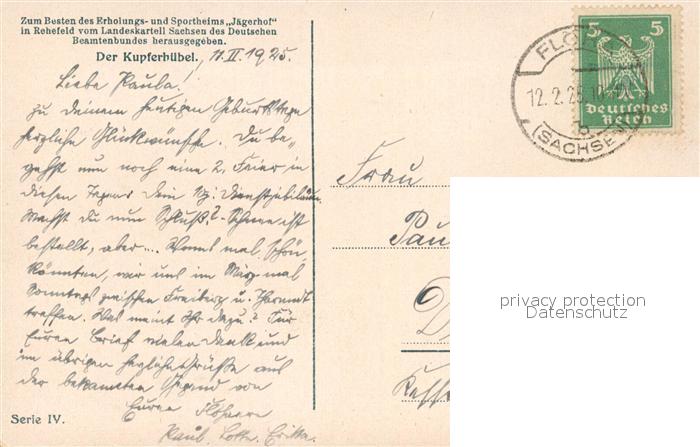 Zum Besten des Erholungs- und Sportheims „Jägerhof"
in Rehefeld vom Landeskartell Sachsen des Deutschen
Beamtenbundes herausgegeben.
Der Kupferhübel. 11.II.1925.
Liebe Paula!
zu Deinem heutigen Geburtstage
herzliche Glückwünsche. Du be-
gehst nun noch eine 2. Feier in
diesen Tagen: Dein Dienstjubiläum.
Machst Du nun Schluß? – Schnee ist
bestellt, aber... Wenns mal schön,
könnten wir uns im März mal
Sonntags zwischen Freiberg u. Tharandt
treffen. Was meint Ihr dazu? Für
Euren Brief vielen Dank und
im übrigen herzliche Grüße aus
der bekannten Gegend von
Euren Flöhaern
Paul, Lotte, Erika.
Serie IV.
5 5
Deutsches
Reich
FLÖ
12.2.25.
(SACHSEN)
Frau
Pau
privacy protection
Datenschutz